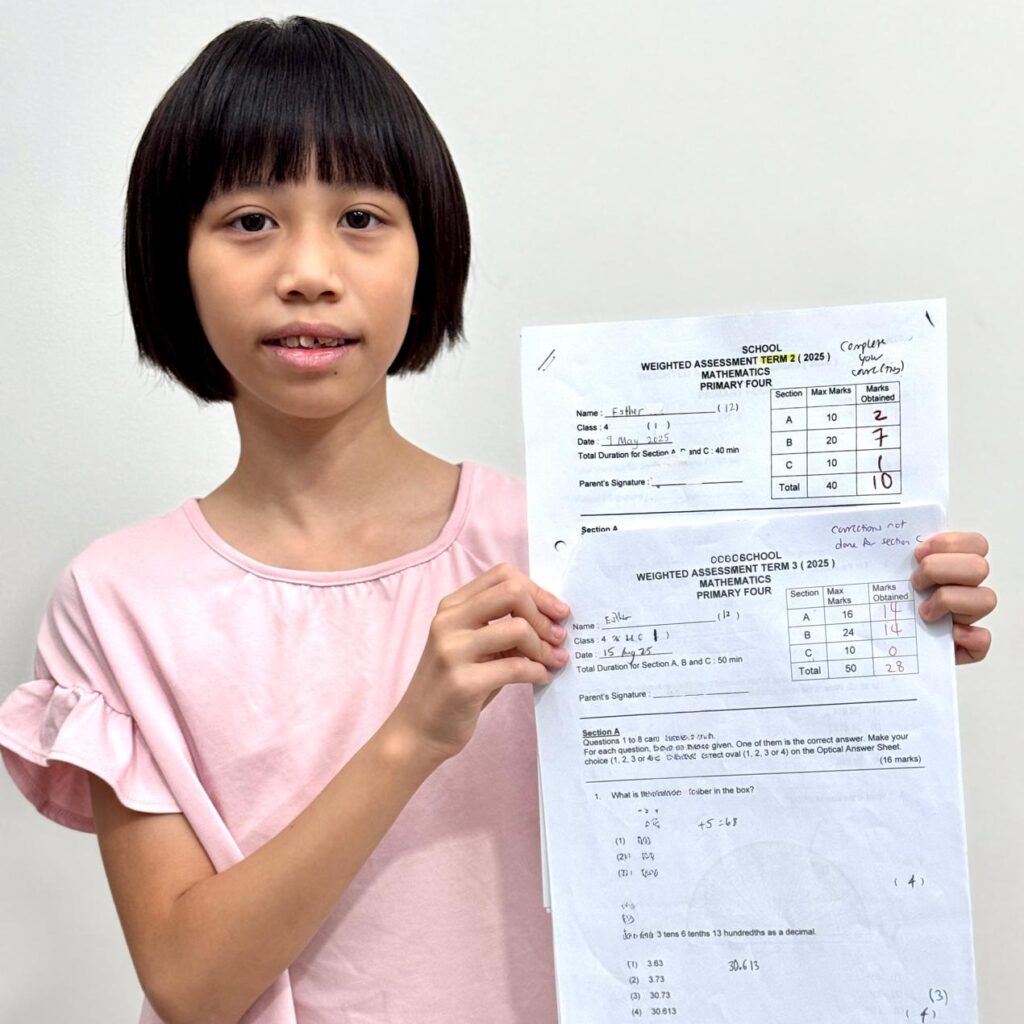 SCHOOL
WEIGHTED ASSESSMENT TERM 2 ( 2025 )
MATHEMATICS
PRIMARY FOUR
Complete
your
Name : Esther ( 12 )
Class : 4 ( 1 )
Date : 9 May 2025
Total Duration for Section A and C : 40 min
Parent's Signature :
Section Max Marks Marks Obtained
A 10 2
B 20 7
C 10 1
Total 40 10
Section A
corrections not
done for section C
SCHOOL
WEIGHTED ASSESSMENT TERM 3 ( 2025 )
MATHEMATICS
PRIMARY FOUR
Name : Esther ( 12 )
Class : 4
Date : 15 Aug 25
Total Duration for Section A, B and C : 50 min
Parent's Signature :
Section Max Marks Marks Obtained
A 16 14
B 24 14
C 10 0
Total 50 28
Section A
Questions 1 to 8
For each question, given. One of them is the correct answer. Make your
choice (1, 2, 3 or 4) correct oval (1, 2, 3 or 4) on the Optical Answer Sheet.
(16 marks)
1. What is in the box?
+5 = 68
(1)
(2)
(3)
( 4 )
3 tens 6 tenths 13 hundredths as a decimal.
(1) 3.63
30.613
(2) 3.73
(3) 30.73
(3)
(4) 30.613
( 4 )